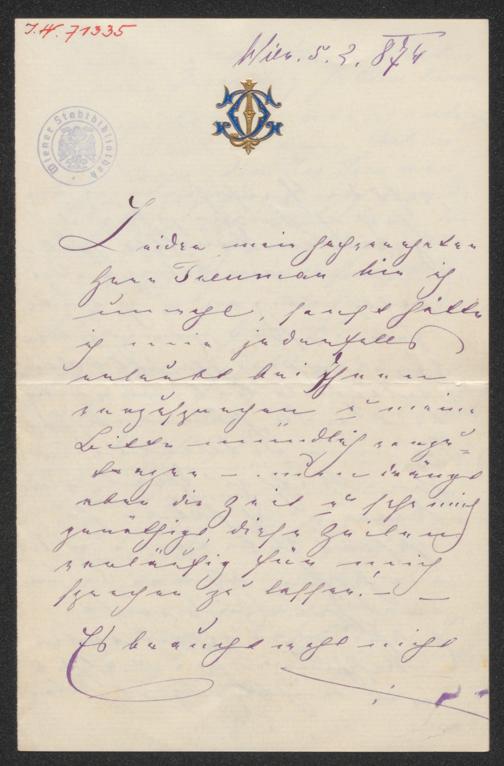 J.N. 71335
Wien. 5. 2. 874
Wiener Stadtbibliothek
Leider mein hochverehrter
Herr Treuman bin ich
unwohl, sonst hätte
ich mir jedenfalls
erlaubt bei Ihnen
vorzusprechen u meine
Bitte mündlich vorzu-
tragen – nun drängt
aber die Zeit u sehe mich
genöthigt, diese Zeilen
vorläufig für mich
sprechen zu lassen. –
Es braucht wohl nicht